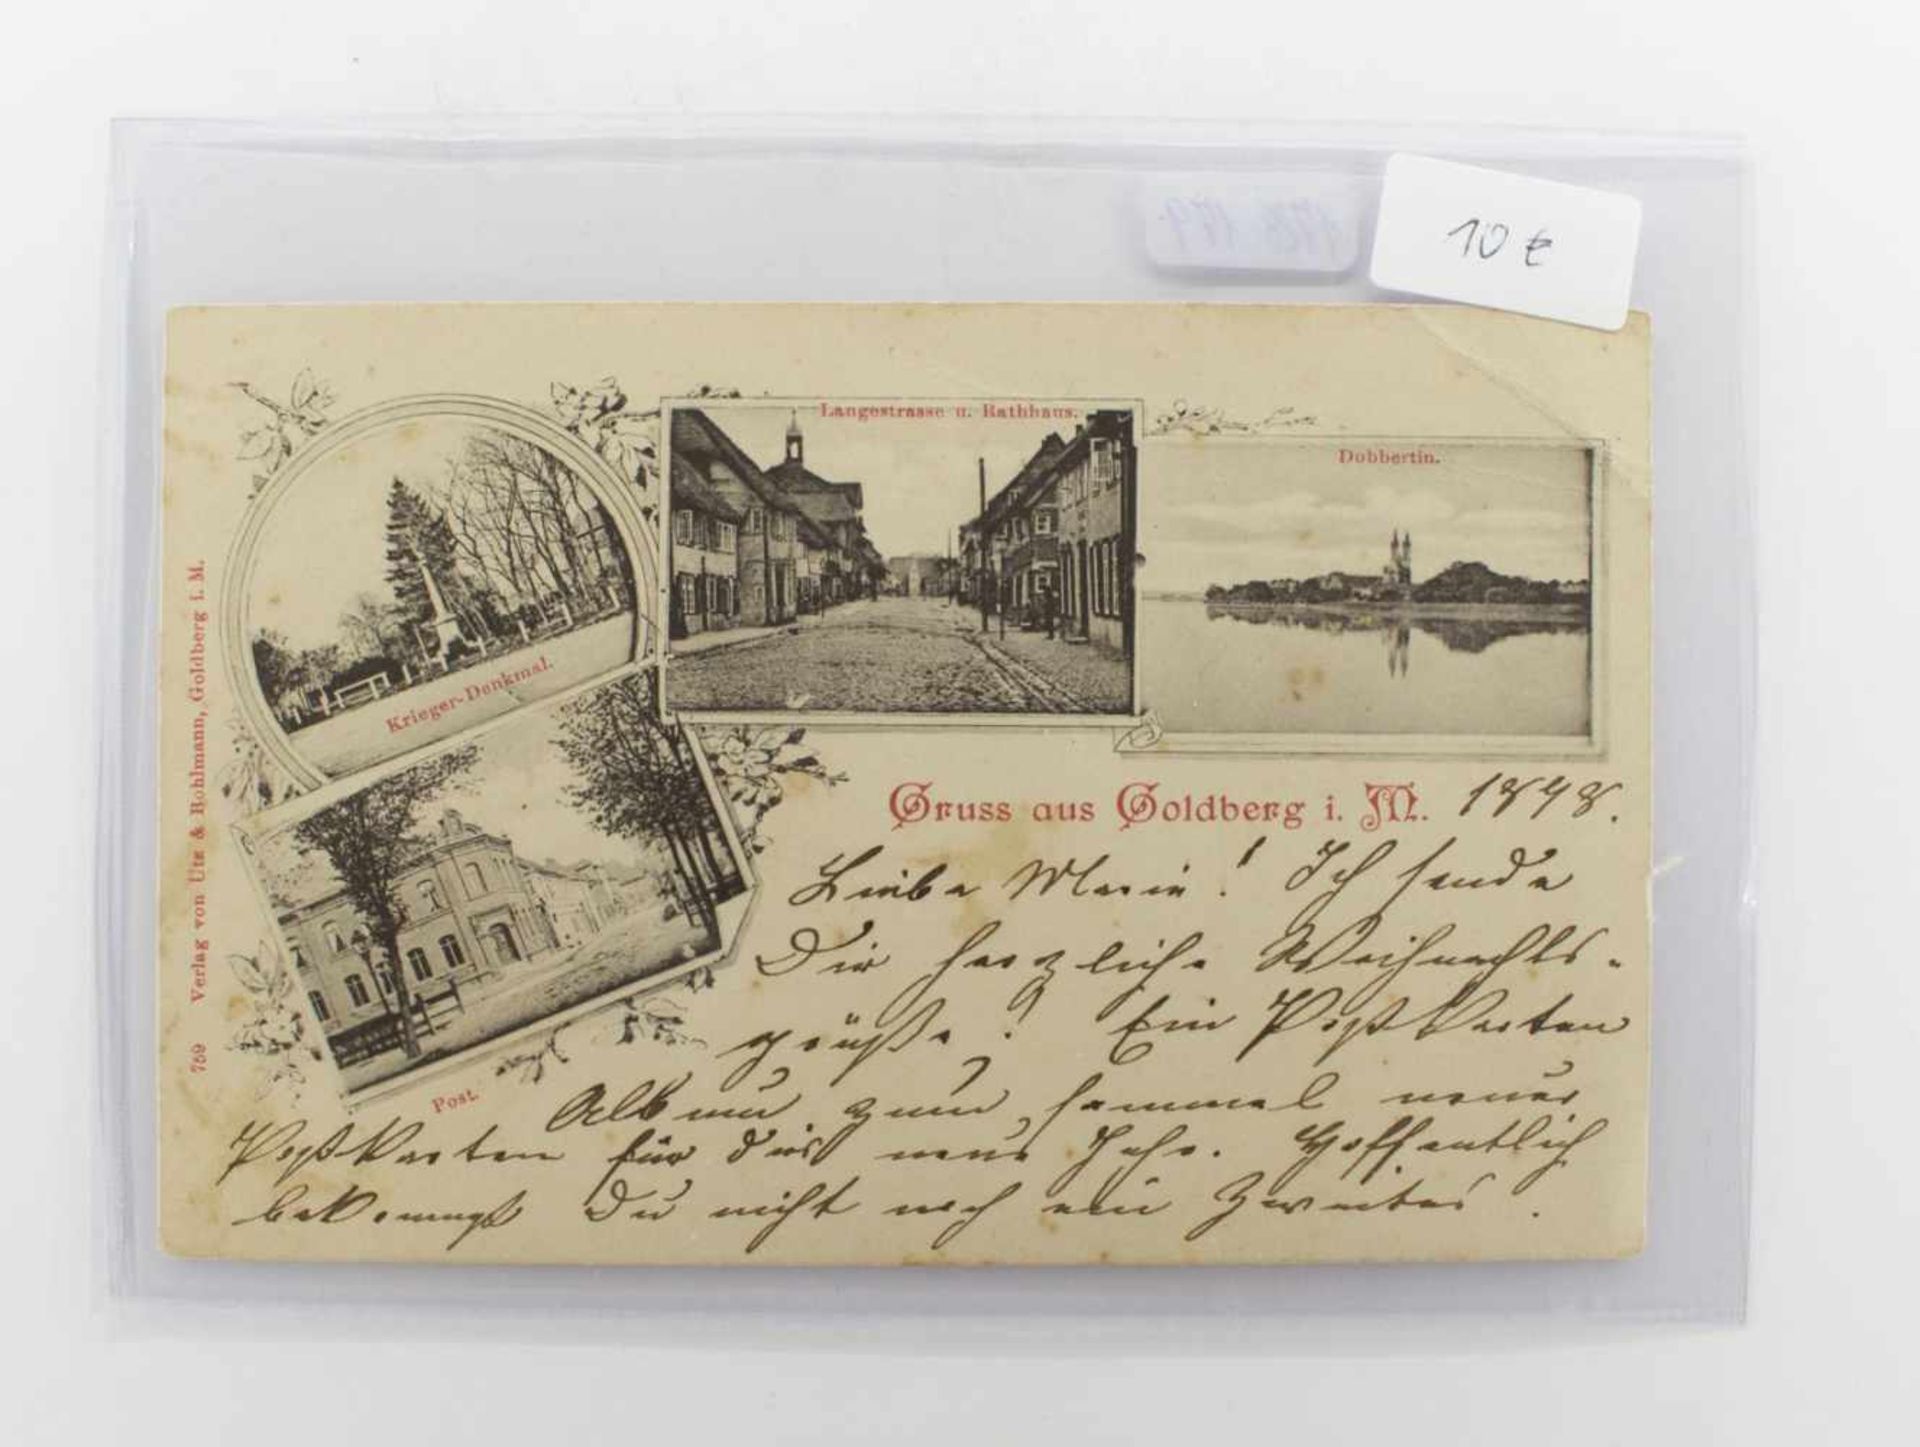 10 €
Langestrasse u. Rathhaus.
Dobbertin.
Krieger-Denkmal.
Post.
759 Verlag von Utz & Bohlmann, Goldberg i. M.
Gruss aus Goldberg i. M. 1898.
Liebe Marie! Ich sende
Dir herzliche Weihnachts-
grüße! Ein Postkarten
Album zum sammel neuer
Postkarten für dies neue Jahr. Hoffentlich
bekommst Du nicht noch ein Zweites.